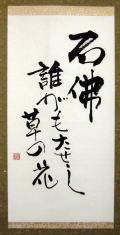 石佛
誰がもたせし
草の花